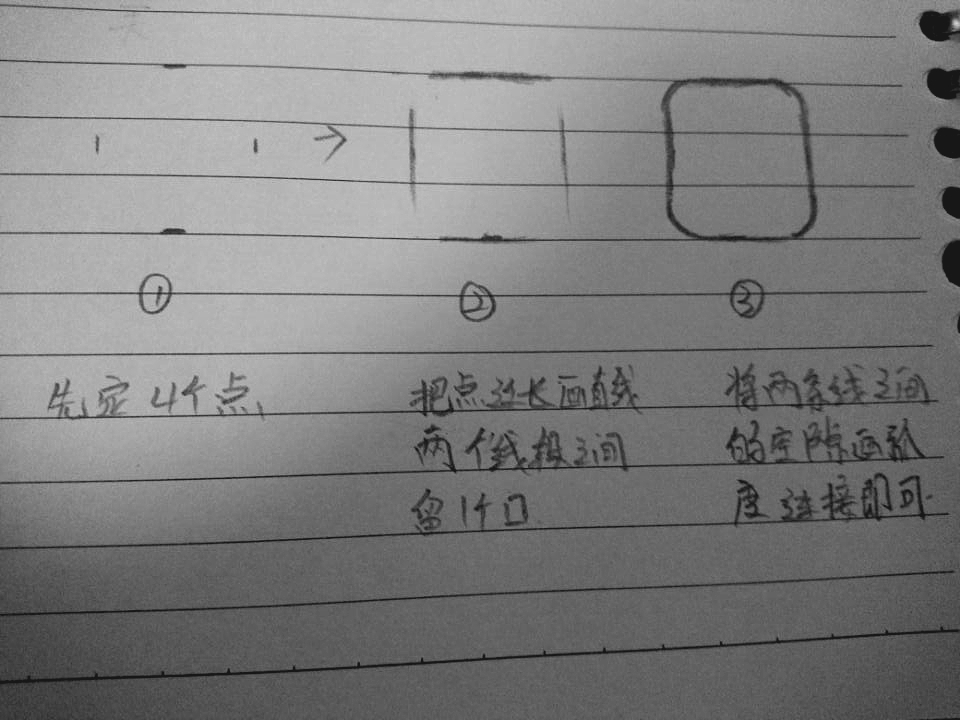 ① ② ③
先定4个点
把点延长画直线
两个线段之间
留1个口
将两条线之间
的空隙画弧
度连接即可.